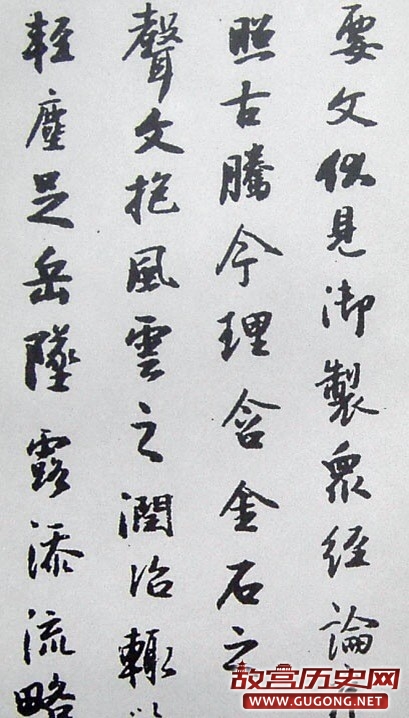 要文伏見御製眾經論序
照古騰今理含金石之
聲文抱風雲之潤治輒以
輕塵足岳墜露添流略
故宫历史网
WWW.GUGONG.NET